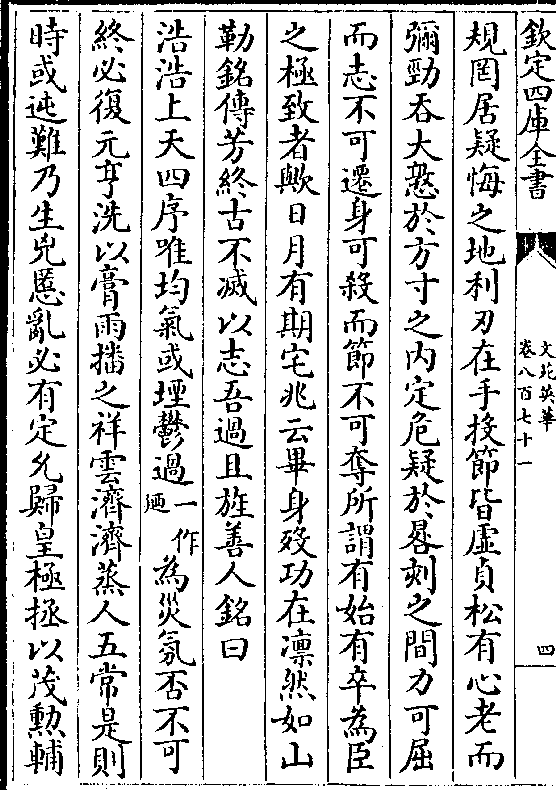 欽定四庫全書
文苑英華
卷八百七十一
四
規罔居疑悔之地利刃在手投節皆虛貞松有心老而
彌勁吞大憝於方寸之內定危疑於晷刻之間力可屈
而志不可遷身可殺而節不可奪所謂有始有卒為臣
之極致者歟日月有期宅兆云畢身歿功在凛然如山
勒銘傳芳終古不滅以志吾過且旌善人銘曰
浩浩上天四序唯均氣或堙鬱過一作廼為災氛否不可
終必復元亨洗以膏雨播之祥雲濟濟蒸人五常是則
時或迍難乃生兇慝亂必有定允歸皇極拯以茂勲輔